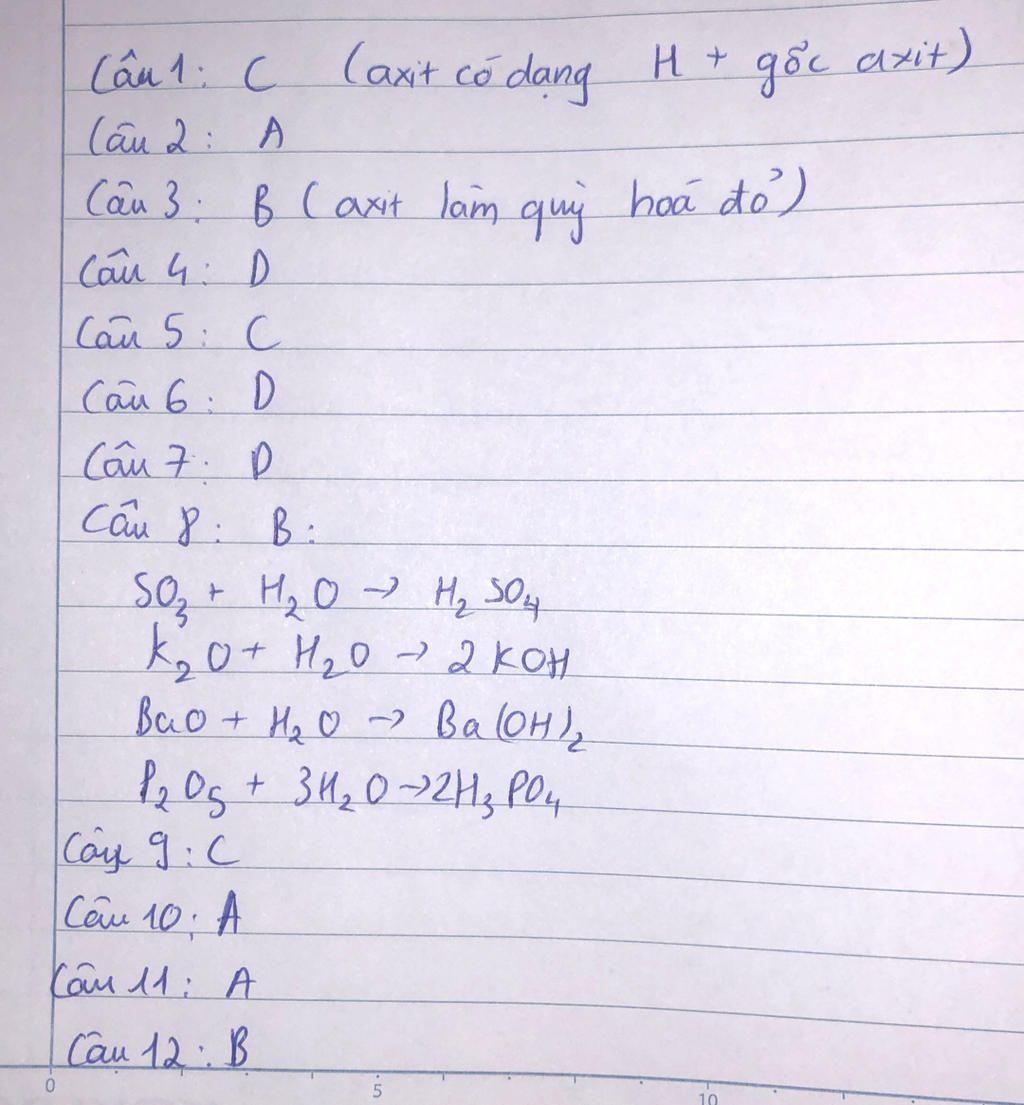 Câu 1: C (axit có dạng H + gốc axit)
Câu 2: A
Câu 3: B (axit làm quỳ hoá đỏ)
Câu 4: D
Câu 5: C
Câu 6: D
Câu 7: D
Câu 8: B:
SO₃ + H₂O → H₂SO₄
K₂O + H₂O → 2KOH
BaO + H₂O → Ba(OH)₂
P₂O₅ + 3H₂O → 2H₃PO₄
Câu 9: C
Câu 10: A
Câu 11: A
Câu 12: B
0 5 10